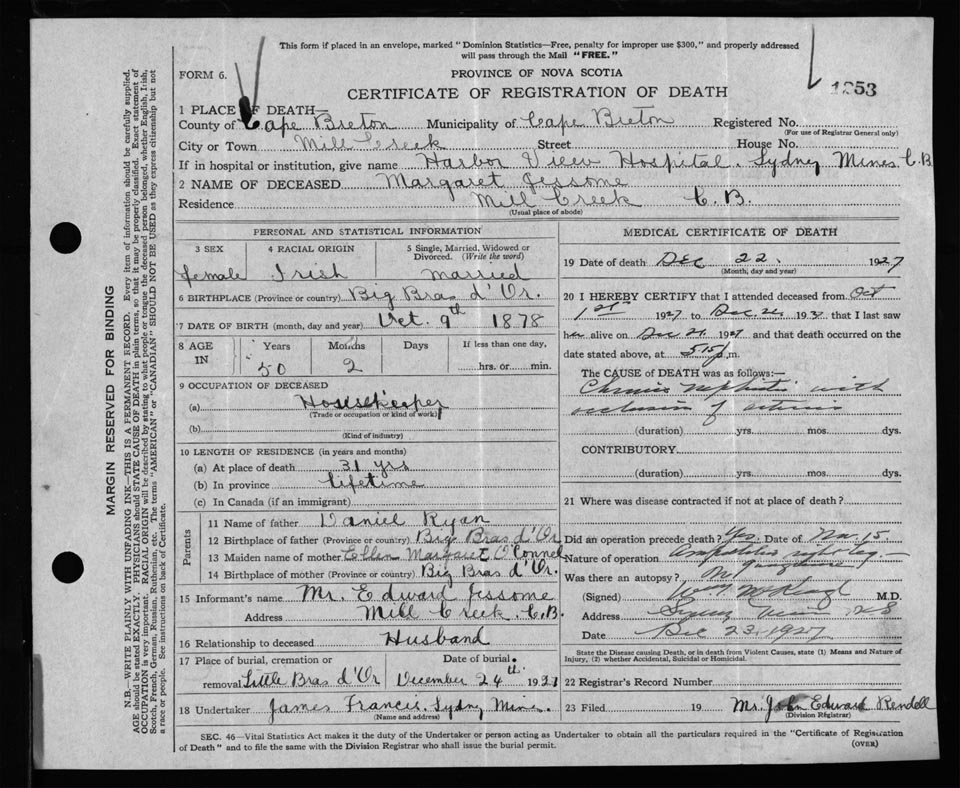 This form if placed in an envelope, marked "Dominion Statistics—Free, penalty for improper use $300," and properly addressed
will pass through the Mail "FREE."
FORM 6.
PROVINCE OF NOVA SCOTIA
CERTIFICATE OF REGISTRATION OF DEATH
1253
1 PLACE OF DEATH—
County of Cape Breton Municipality of Cape Breton Registered No.
(For use of Registrar General only)
City or Town Mill Creek Street House No.
If in hospital or institution, give name Harbor View Hospital. Sydney Mines C.B
2 NAME OF DECEASED Margaret Jessome
Residence Mill Creek C.B.
(Usual place of abode)
PERSONAL AND STATISTICAL INFORMATION
3 SEX 4 RACIAL ORIGIN 5 Single, Married, Widowed or
Divorced. (Write the word)
female Irish married
6 BIRTHPLACE (Province or country) Big Bras d'Or.
7 DATE OF BIRTH (month, day and year) Oct. 9th 1878
8 AGE IN Years Months Days If less than one day,
50 2 hrs. or min.
9 OCCUPATION OF DECEASED
(a) Housekeeper
(Trade or occupation or kind of work)
(b)
(Kind of industry)
10 LENGTH OF RESIDENCE (in years and months)
(a) At place of death 31 yrs
(b) In province lifetime
(c) In Canada (if an immigrant)
Parents
11 Name of father Daniel Ryan
12 Birthplace of father (Province or country) Big Bras d'Or
13 Maiden name of mother Ellen Margaret O'Connel
14 Birthplace of mother (Province or country) Big Bras d'Or.
15 Informant's name Mr. Edward Jessome
Address Mill Creek C.B.
16 Relationship to deceased Husband
17 Place of burial, cremation or Date of burial.
removal Little Bras d'Or December 24th 1927
18 Undertaker James Francis. Sydney Mines.
(Name and address)
MEDICAL CERTIFICATE OF DEATH
19 Date of death Dec 22. 1927
(Month, day and year)
20 I HEREBY CERTIFY that I attended deceased from Oct
1st 1927 to Dec 192 that I last saw
her alive on Dec 21 1927 and that death occurred on
date stated above, at m.
The CAUSE OF DEATH was as follows:—
Chronic nephritis with
occlusion of arteries
(duration) yrs. mos. dys.
CONTRIBUTORY.
(duration) yrs. mos. dys.
21 Where was disease contracted if not at place of death?
Did an operation precede death? Yes. Date of Nov 5
Nature of operation Amputation right leg
Was there an autopsy?
(Signed) M.D.
Address Sydney Mines N S
Date Dec 23. 1927
State the Disease causing Death, or in death from Violent Causes, state (1) Means and Nature of
Injury, (2) whether Accidental, Suicidal or Homicidal.
22 Registrar's Record Number
23 Filed 19 Mr. John Edward Rendell
(Division Registrar)
SEC. 46—Vital Statistics Act makes it the duty of the Undertaker or person acting as Undertaker to obtain all the particulars required in the "Certificate of Registration
of Death" and to file the same with the Division Registrar who shall issue the burial permit.
(OVER)
MARGIN RESERVED FOR BINDING
N.B.—WRITE PLAINLY WITH UNFADING INK—THIS IS A PERMANENT RECORD. Every item of information should be carefully supplied.
AGE should be stated EXACTLY. PHYSICIANS should STATE CAUSE OF DEATH in plain terms, so that it may be properly classified. Exact statement of
OCCUPATION is very important. RACIAL ORIGIN will be described by stating to what people or tongue the deceased person belonged, whether English, Irish,
Scotch, French, German, Russian, Ruthenian, etc. The terms "AMERICAN" or "CANADIAN" SHOULD NOT BE USED as they express citizenship but not
a race or people. See instructions on back of Certificate.